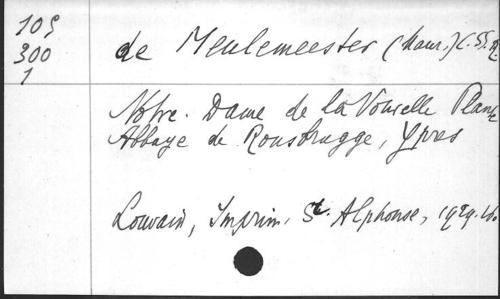 105
300
1
de Meulemeester (Maur.) C. SS. R
Notre. Dame de la Nouvelle Plante
Abbaye de Rousbrugge, Ypres
Louvain, Imprim. St. Alphonse, 1929.